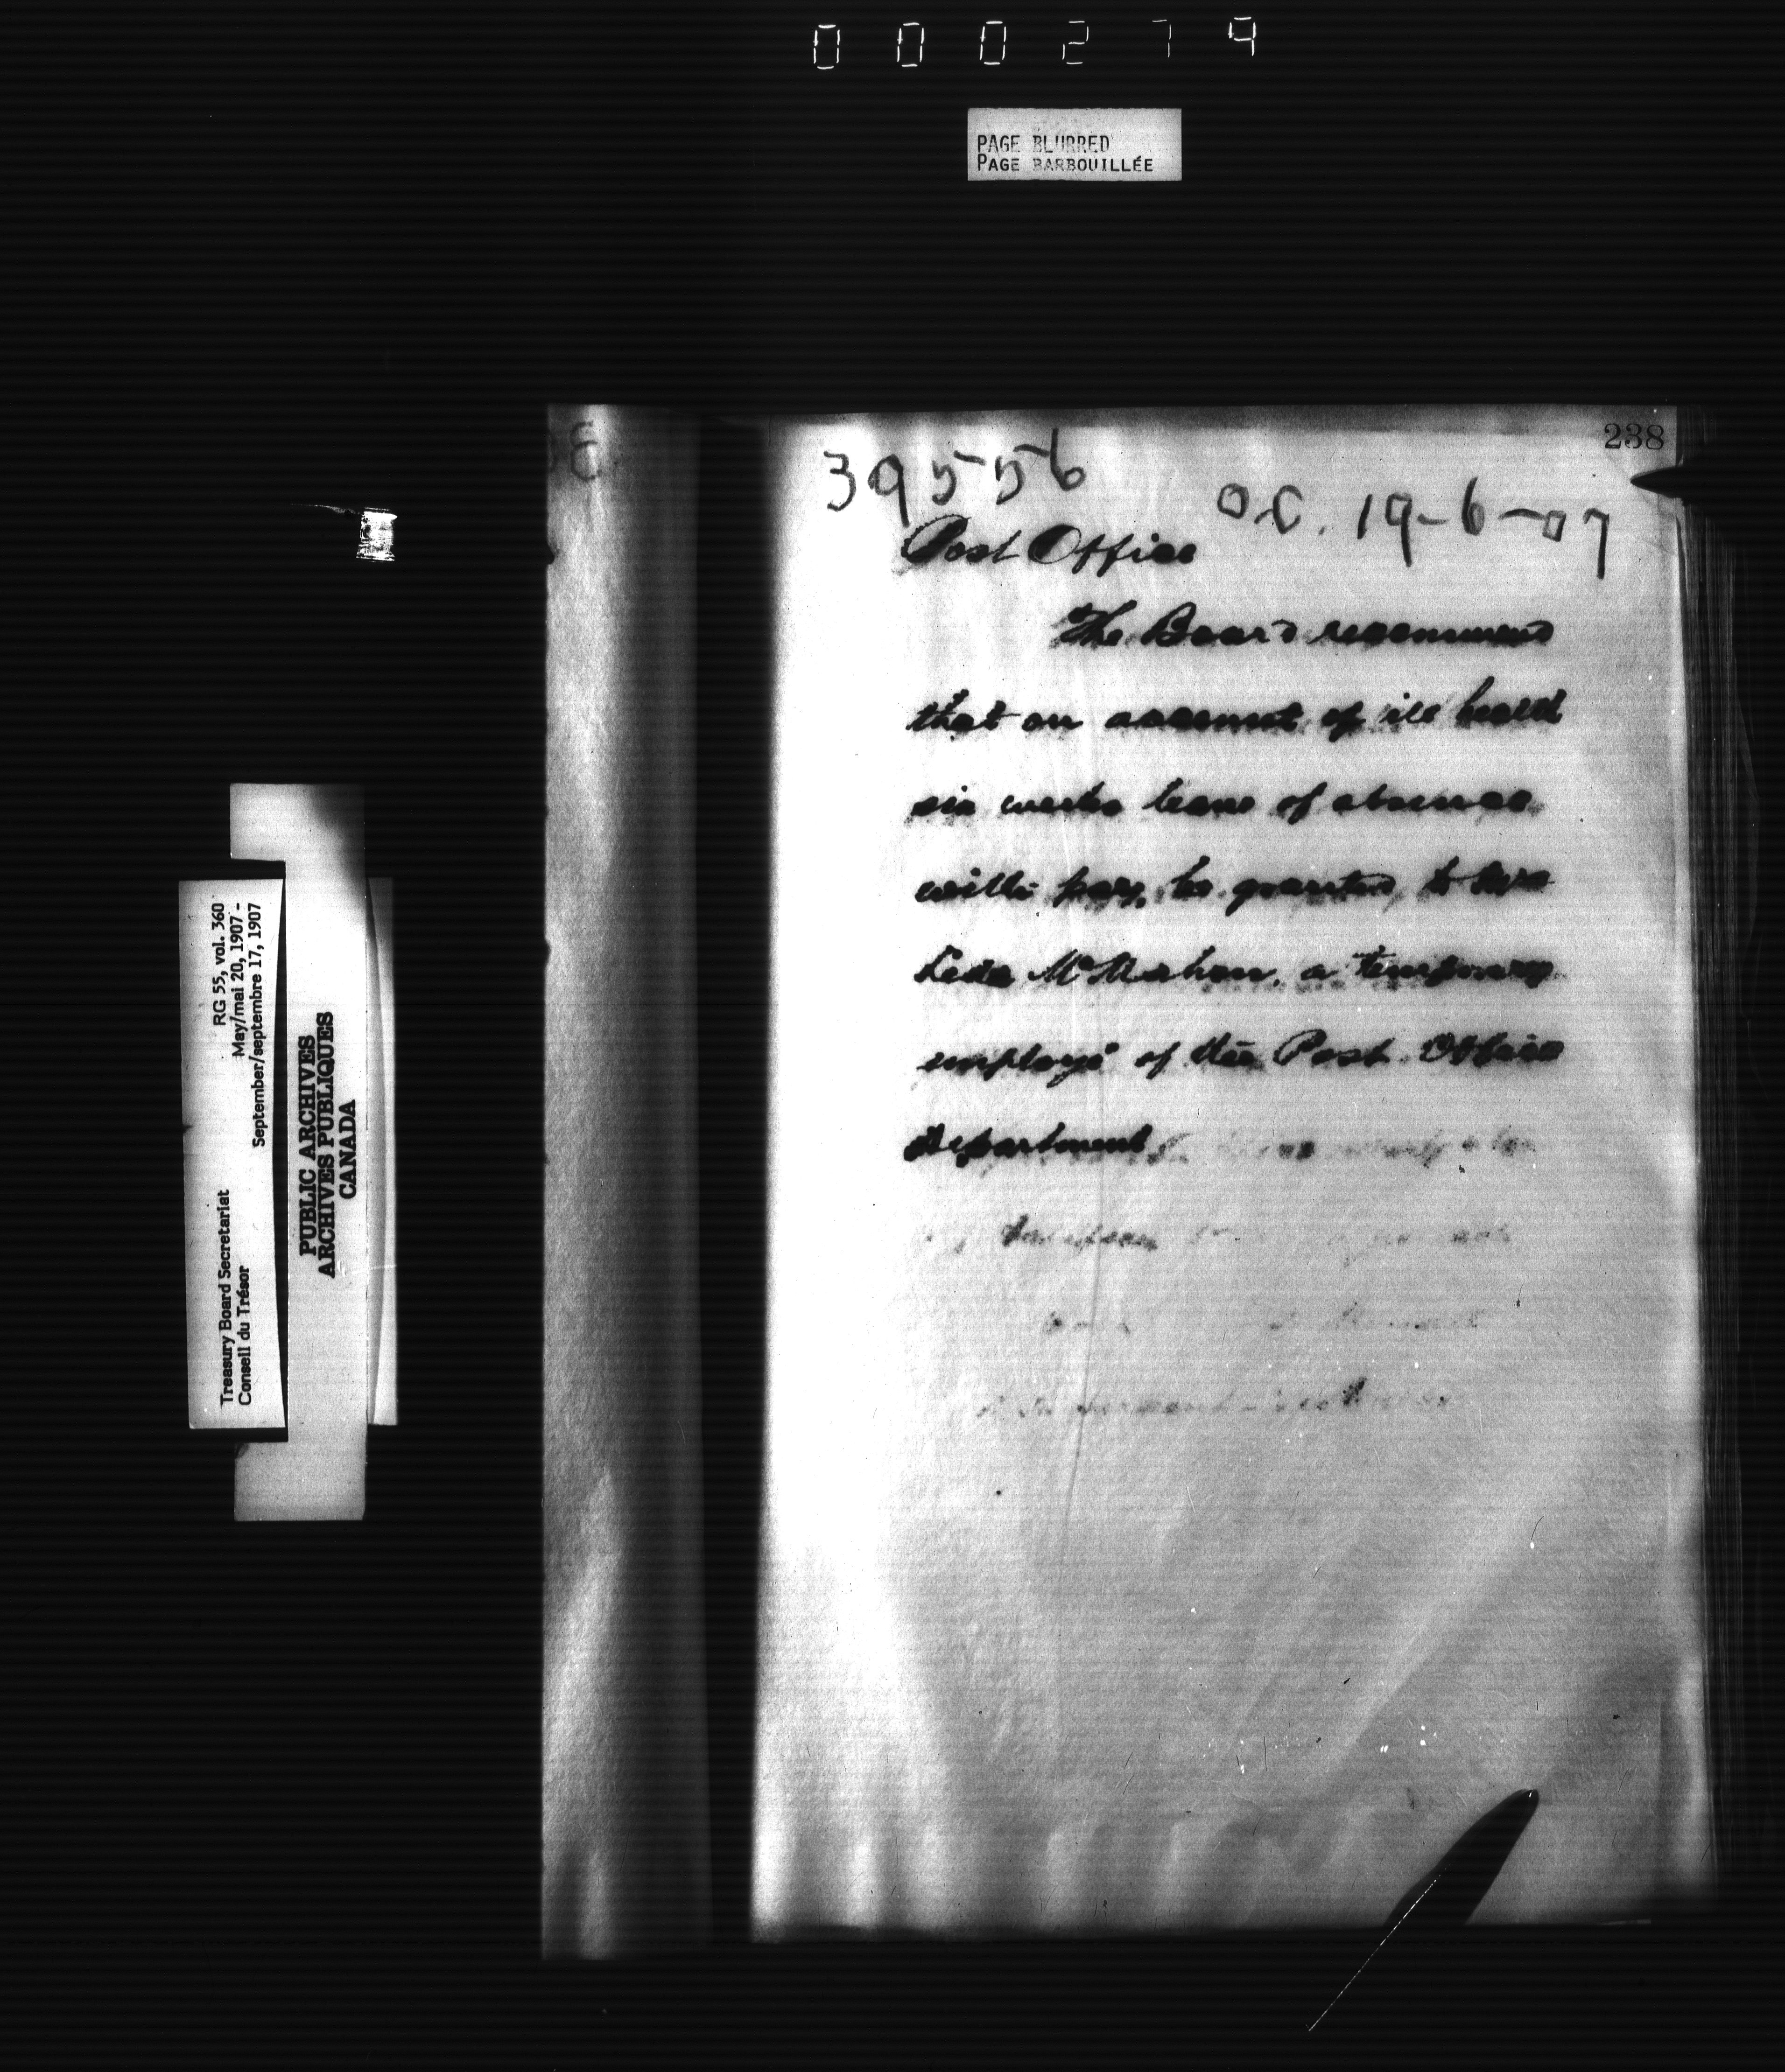 000279
PAGE BLURRED
PAGE BARBOUILLÉE
238
39556
O.C. 19-6-07
Post Office
The Board recommend
that on account of ill health
six weeks leave of absence
with pay, be granted, to
Leda McMahon, a temporary
employé of the Post Office
Department
RG 55, vol. 360
May/mai 20, 1907 -
September/septembre 17, 1907
Treasury Board Secretariat
Conseil du Trésor
PUBLIC ARCHIVES
ARCHIVES PUBLIQUES
CANADA